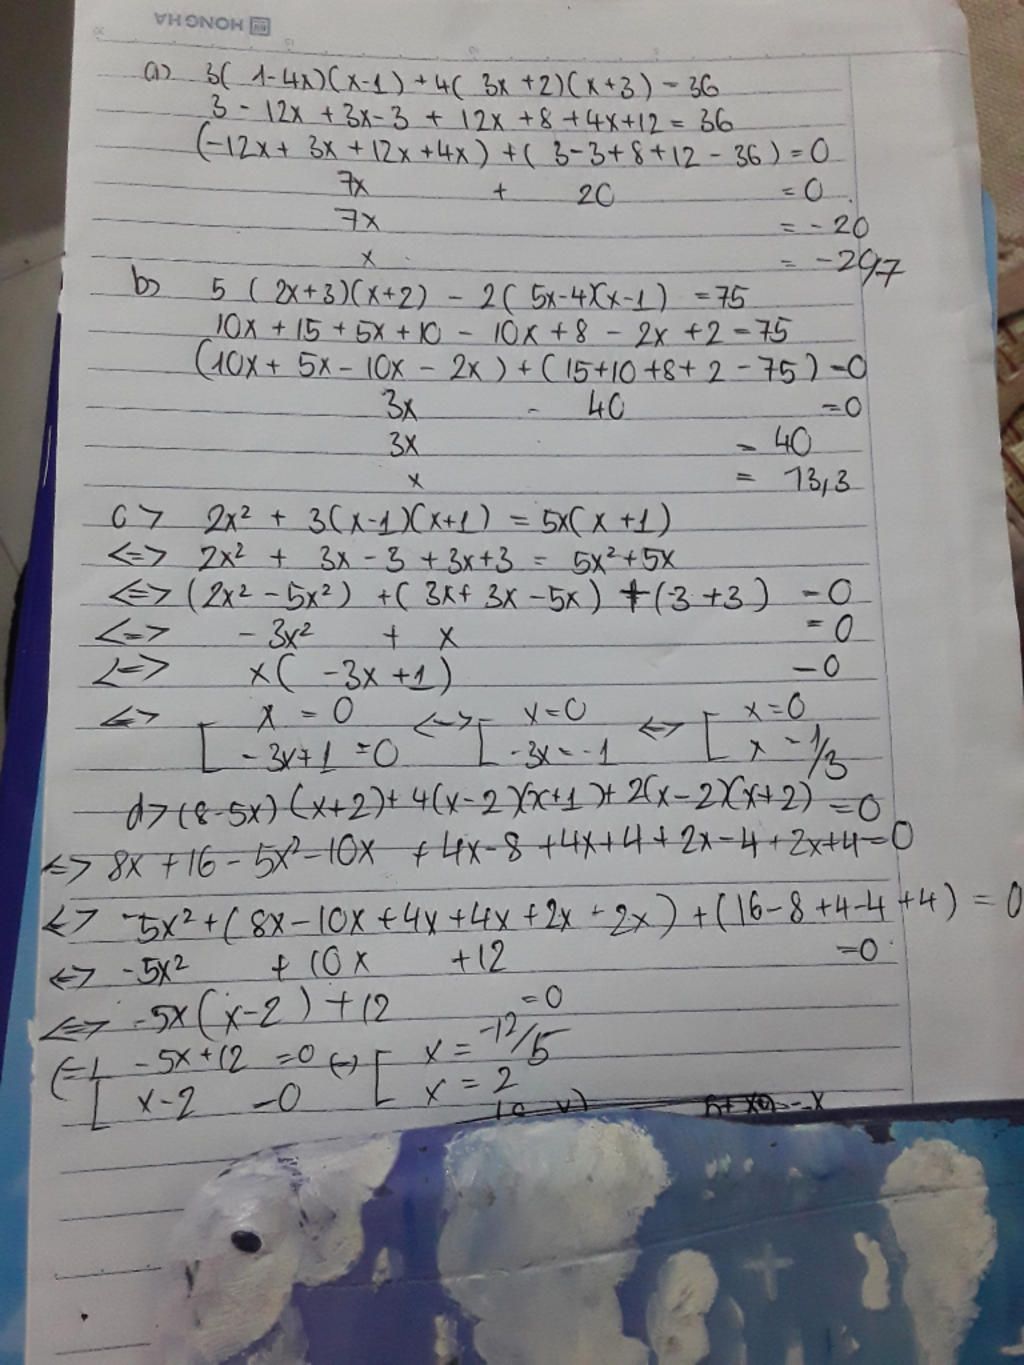 HONG HA
a) 3( 1-4x)(x-1) + 4( 3x+2)(x+3) = 36
3 - 12x + 3x-3 + 12x + 8 + 4x+12 = 36
(-12x+ 3x + 12x+4x) + ( 3-3+8+12 - 36) = 0
7x + 20 = 0
7x = -20
x = -297
b) 5 ( 2x+3)(x+2) - 2( 5x-4)(x-1) = 75
10x + 15 + 5x + 10 - 10x + 8 - 2x + 2 = 75
(10x+ 5x - 10x - 2x) + (15+10+8+ 2 - 75) = 0
3x - 40 = 0
3x = 40
x = 13,3
c> 2x² + 3(x-1)(x+1) = 5x( x+1)
<=> 2x² + 3x - 3 + 3x+3 = 5x²+5x
<=> (2x² - 5x²) + ( 3x+ 3x - 5x) + (-3 +3) = 0
<=> - 3x² + x = 0
<=> x( -3x +1) = 0
<=> [ x = 0 <=> [ x=0 <=> [ x=0
- 3x+1 = 0 -3x = -1 x = 1/3
d> (8-5x) (x+2)+ 4(x-2)(x+1)+ 2(x-2)(x+2) = 0
<=> 8x +16 - 5x² -10x + 4x-8 +4x+4 + 2x-4 + 2x+4 = 0
<=> -5x²+(8x-10x+4x+4x+2x+2x) + (16-8+4-4+4) = 0
<=> -5x² + 10x + 12 = 0
<=> -5x(x-2) + 12 = 0
<=> [ -5x+12 = 0 <=> [ x = -12/5
x-2 = 0 x = 2